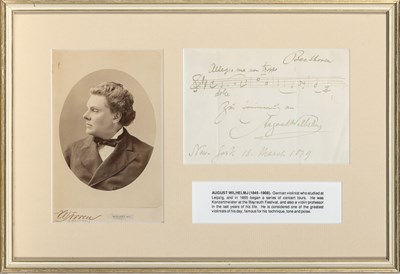 Beethoven
Allegro ma non
Zur
August Wilhelmj
New York 18. March 1879
AUGUST WILHELMJ (1845 -1908). German violinist who studied at
Leipzig, and in 1865 began a series of concert tours. He was
Konzertmeister at the Bayreuth Festival, and also a violin professor
in the last years of his life. He is considered one of the greatest
violinists of his day, famous for his technique, tone and poise.